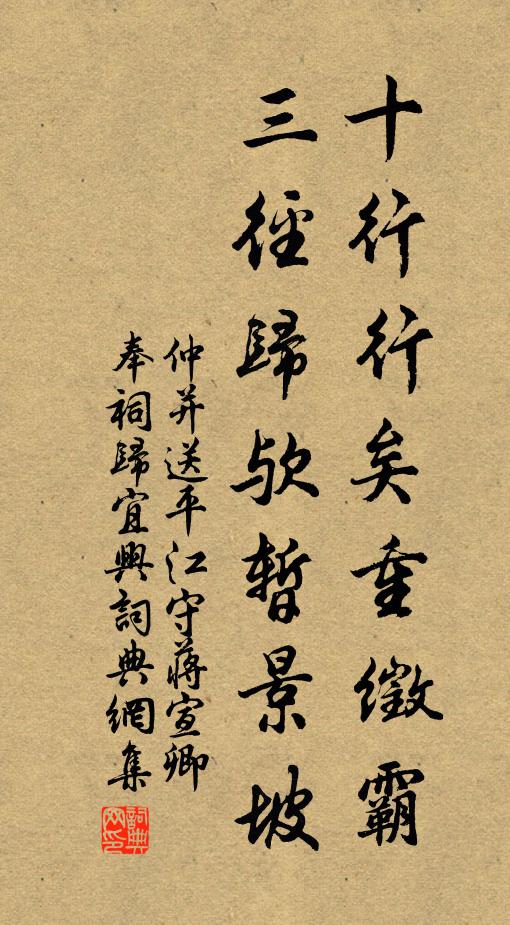 十行行矣重徵霸
三徑歸歟暫景坡
仲并送平江守蔣宣卿
奉祠歸宜興詞典網集
詞典网印